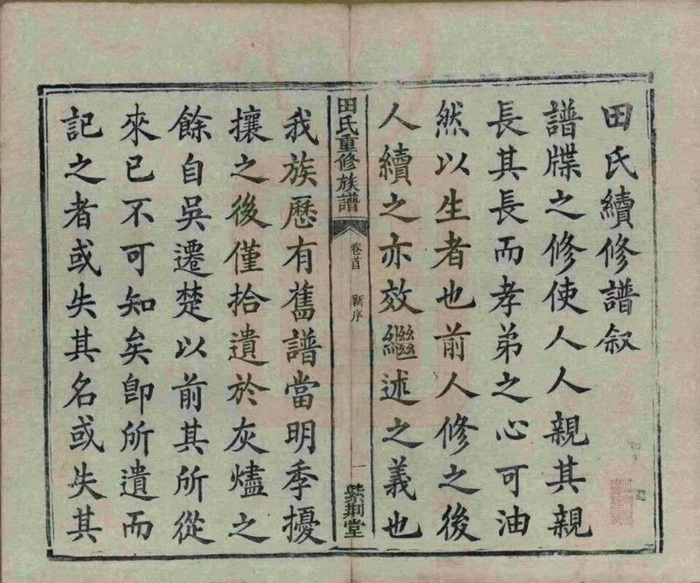 田氏續修譜叙
譜牒之修使人人親其親
長其長而孝弟之心可油
然以生者也前人修之後
人續之亦效繼述之義也
田氏重修族譜
卷首 新序
一 紫荆堂
我族歷有舊譜當明季擾
攘之後僅拾遺於灰燼之
餘自吳遷楚以前其所從
來已不可知矣卽所遺而
記之者或失其名或失其